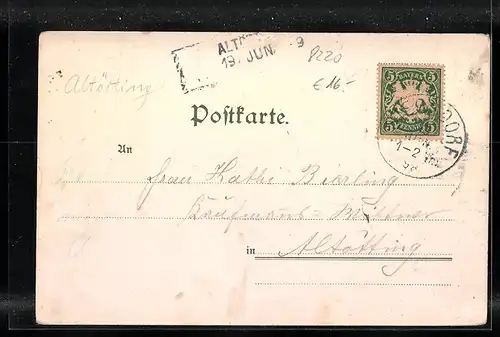 ALT
19. JUN. 9
8220
€ 16.-
Altötting
5 BAYERN 5
5 PFENNIG 5
DORF
1-2
98
Postkarte.
An
Frau Kathi Bierling
Kaufmanns-
in Altötting